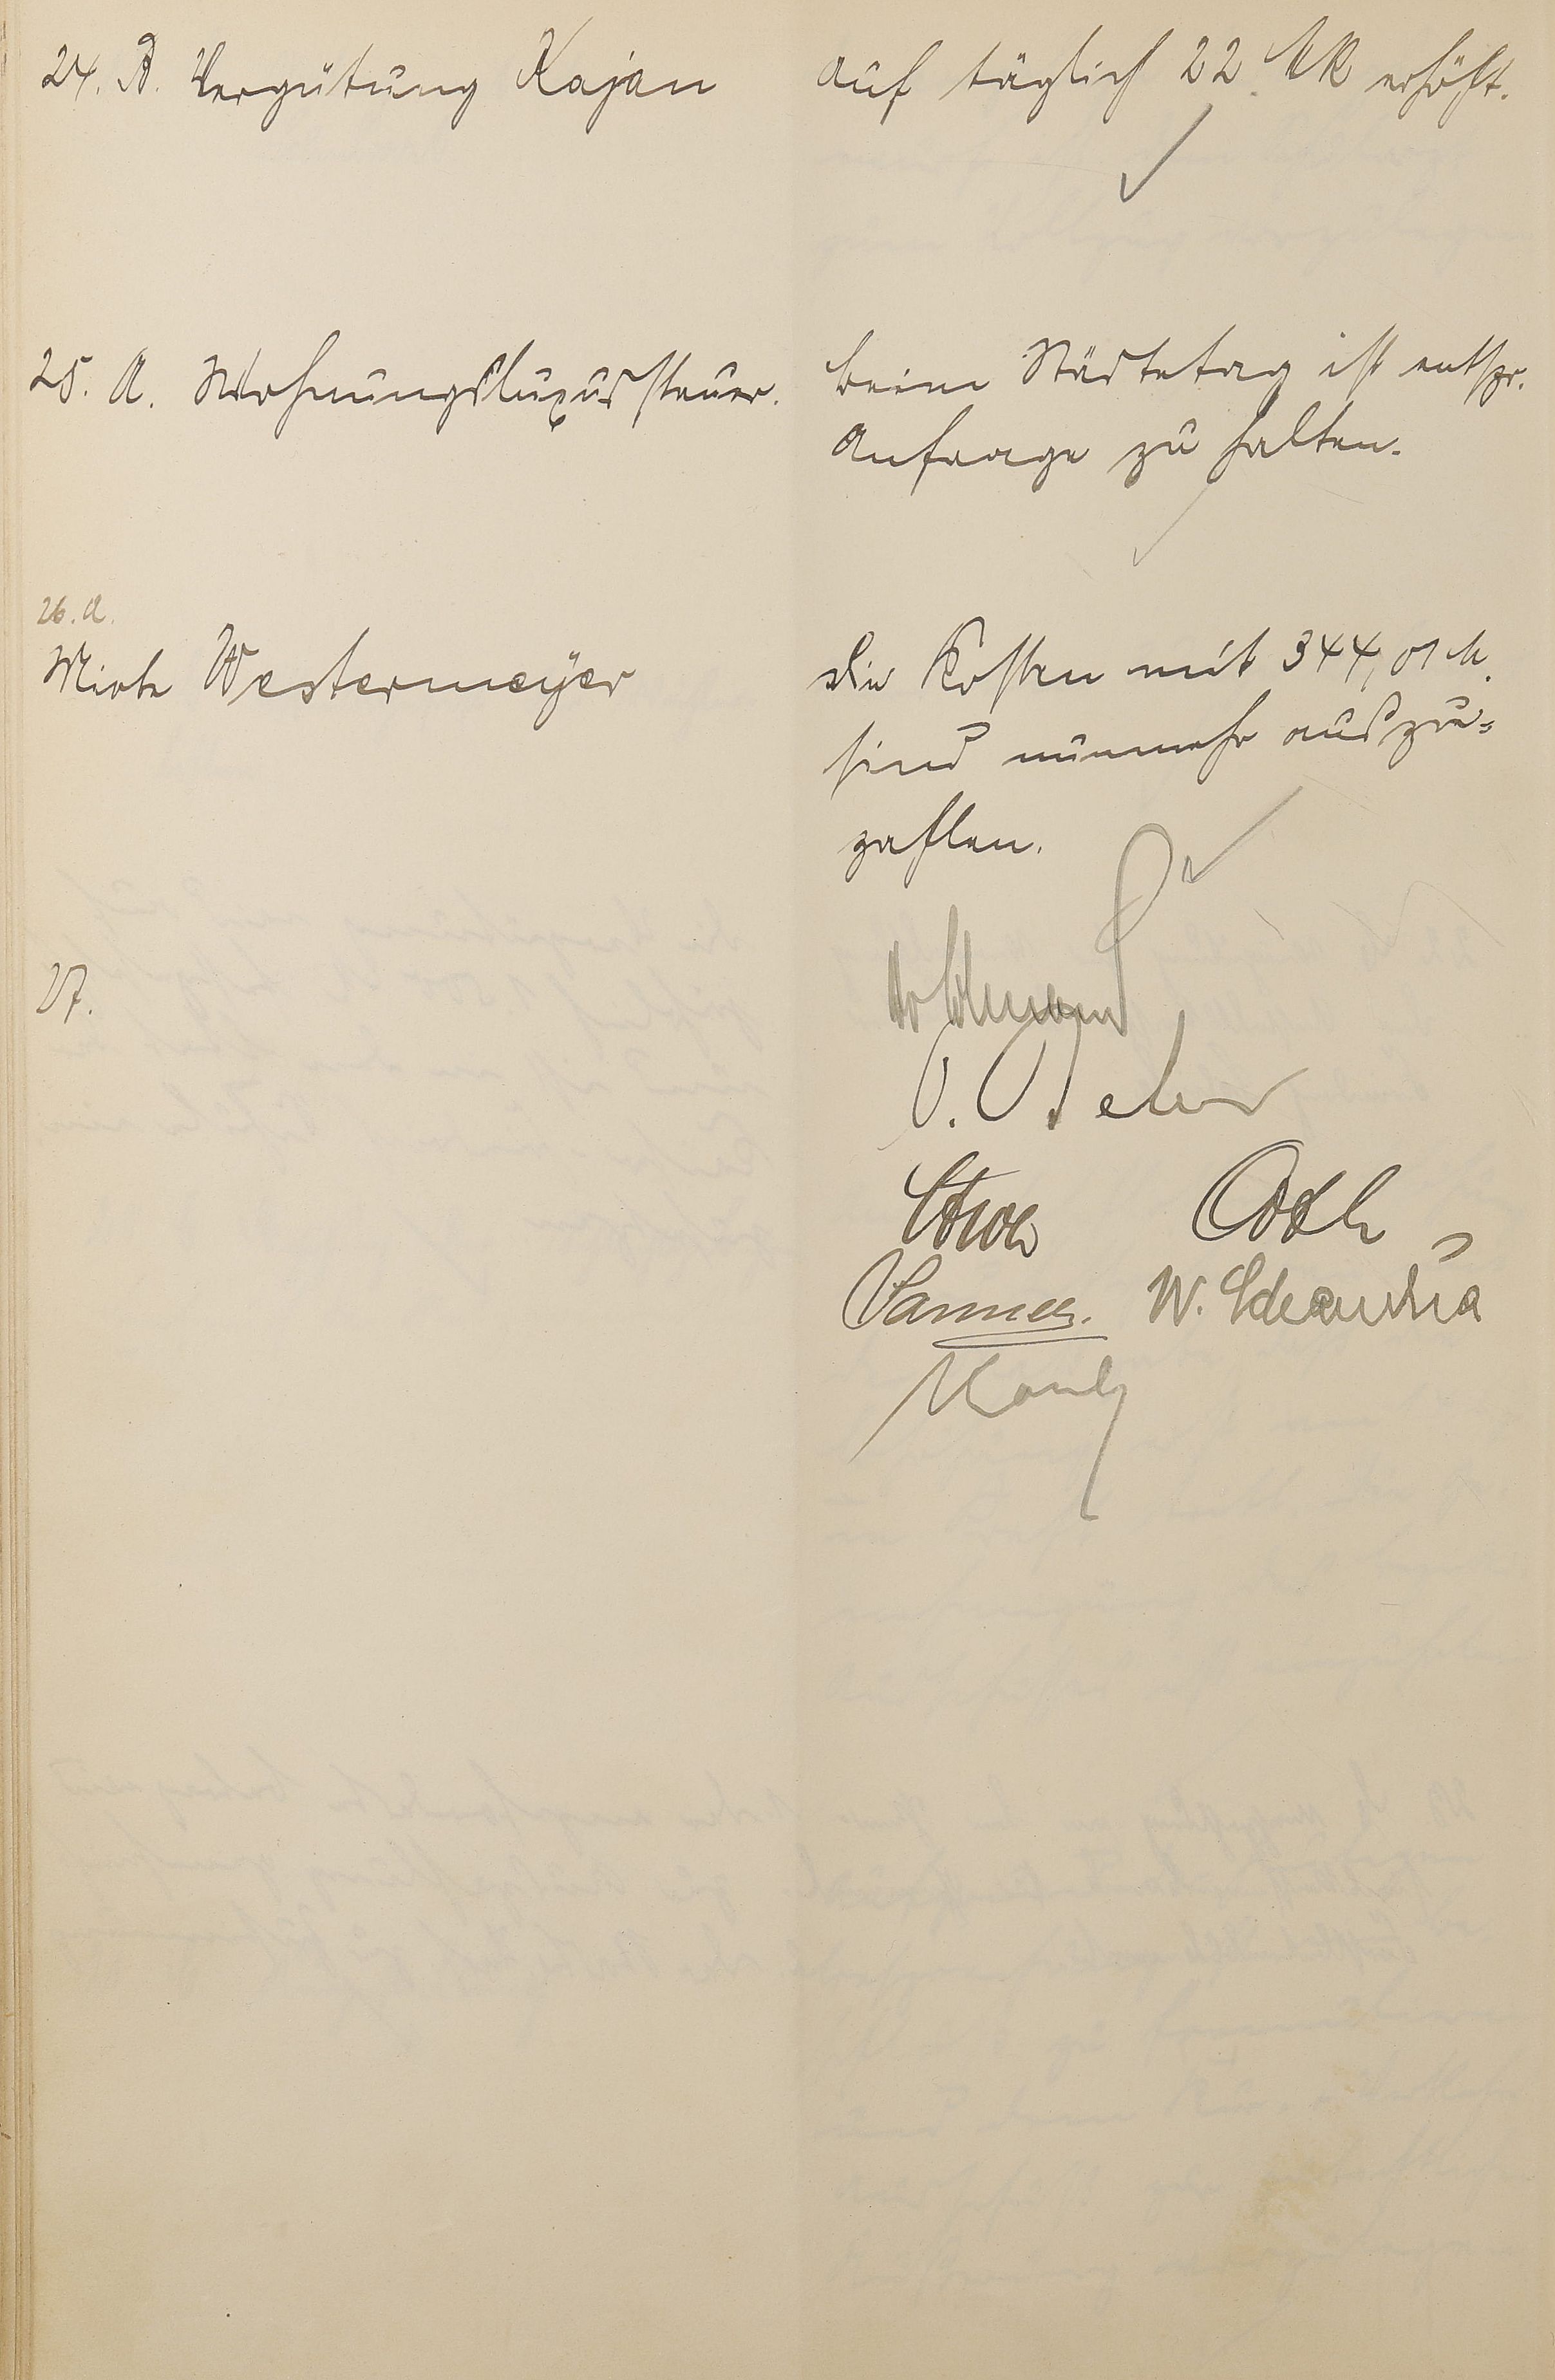 24. A. Vergütung Kajan
auf täglich 22 Mk erhöht.
25. A. Wohnungsluxussteuer.
beim Städtetag ist entspr.
Anfrage zu halten.
26. A.
Miete Westermeyer
die Kosten mit 344,01 M.
sind nunmehr auszu=
zahlen.
27.